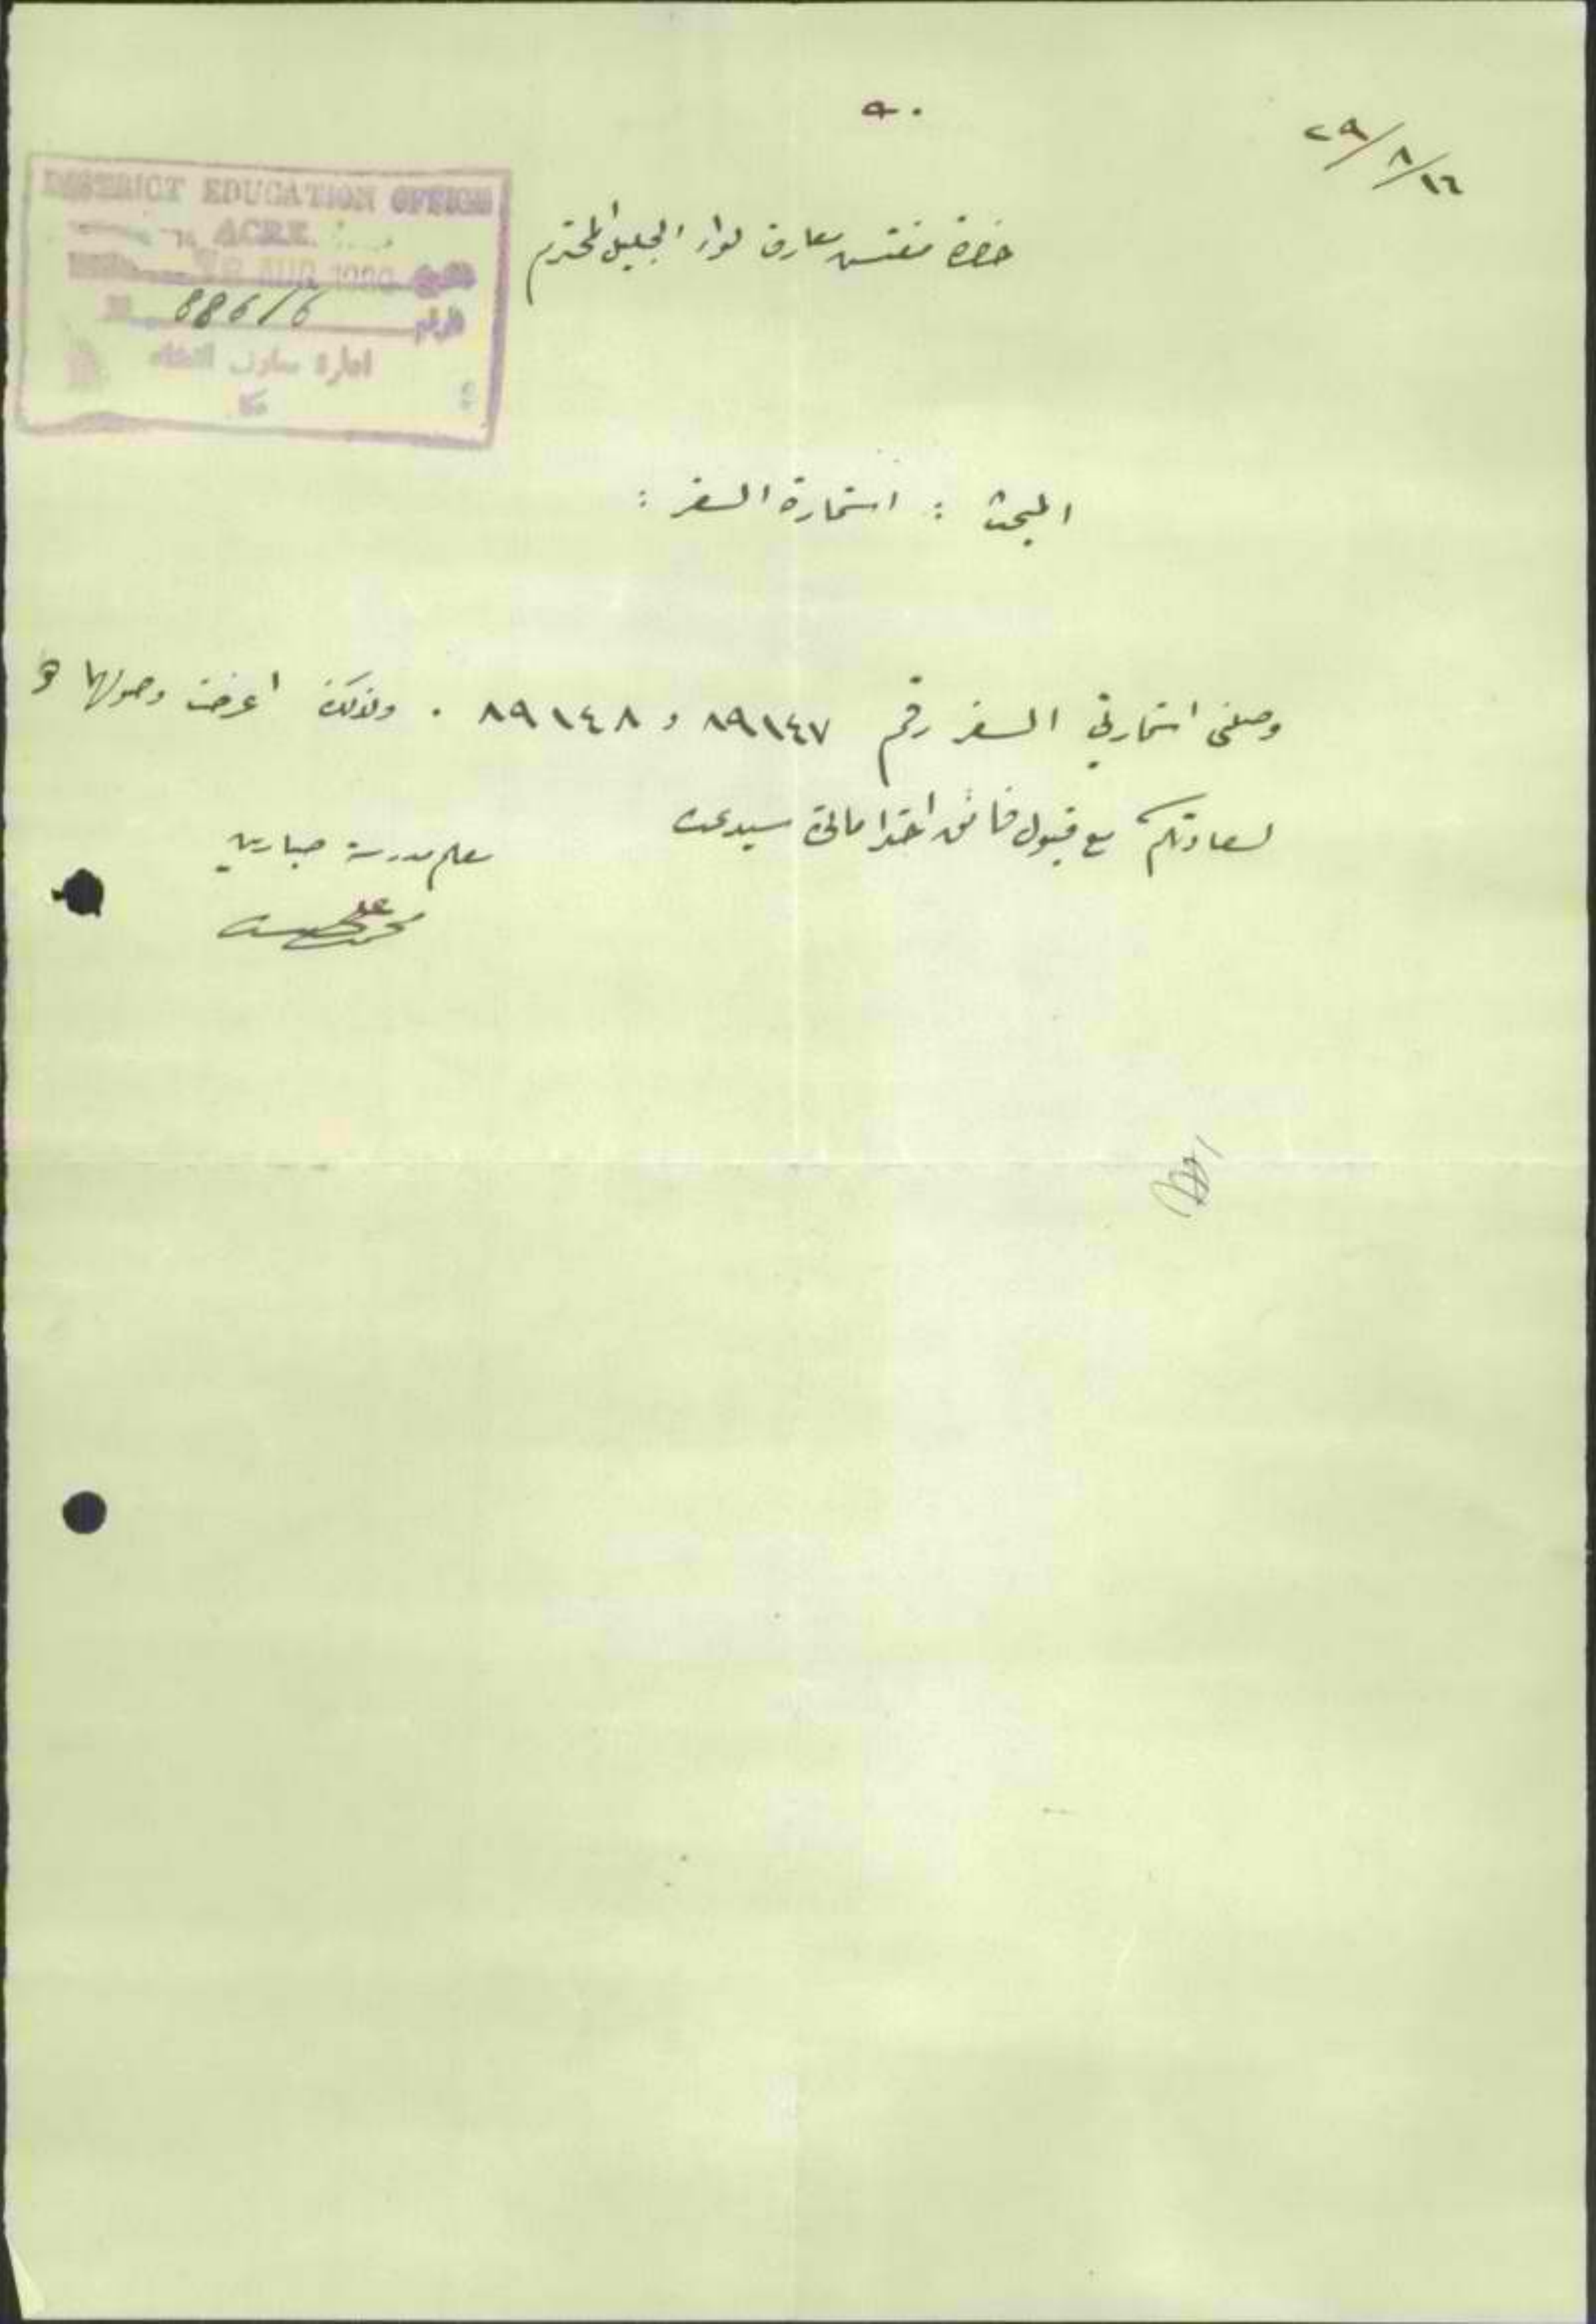 ٩٠
٢٩/٨/١٦
DISTRICT EDUCATION OFFICE
ACRE.
AUG
886/6
الرقم
ادارة معارف القضاء
عكا
حضرة مفتش معارف لواء الجليل المحترم
المبحث : استمارة السفر :
وصلني استمارتي السفر رقم ٨٩١٤٧ و ٨٩١٤٨ . ولذلك اعرضت وصولها
لسعادتكم مع قبول فائق احتراماتي سيدي
معلم مدرسة صبارين